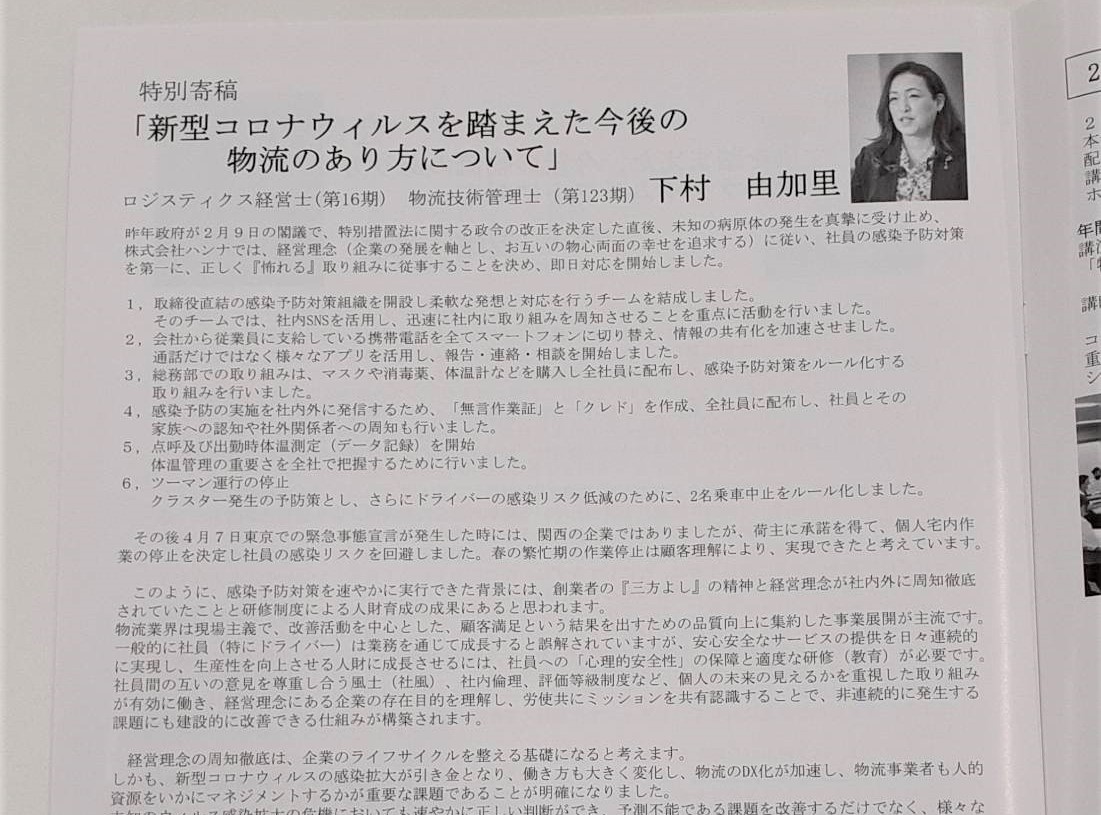 特別寄稿
「新型コロナウィルスを踏まえた今後の
物流のあり方について」
ロジスティクス経営士(第16期)　物流技術管理士（第123期）下村　由加里
昨年政府が２月９日の閣議で、特別措置法に関する政令の改正を決定した直後、未知の病原体の発生を真摯に受け止め、
株式会社ハンナでは、経営理念（企業の発展を軸とし、お互いの物心両面の幸せを追求する）に従い、社員の感染予防対策
を第一に、正しく『怖れる』取り組みに従事することを決め、即日対応を開始しました。
１，取締役直結の感染予防対策組織を開設し柔軟な発想と対応を行うチームを結成しました。
そのチームでは、社内SNSを活用し、迅速に社内に取り組みを周知させることを重点に活動を行いました。
２，会社から従業員に支給している携帯電話を全てスマートフォンに切り替え、情報の共有化を加速させました。
通話だけではなく様々なアプリを活用し、報告・連絡・相談を開始しました。
３，総務部での取り組みは、マスクや消毒薬、体温計などを購入し全社員に配布し、感染予防対策をルール化する
取り組みを行いました。
４，感染予防の実施を社内外に発信するため、「無言作業証」と「クレド」を作成、全社員に配布し、社員とその
家族への認知や社外関係者への周知も行いました。
５，点呼及び出勤時体温測定（データ記録）を開始
体温管理の重要さを全社で把握するために行いました。
６，ツーマン運行の停止
クラスター発生の予防策とし、さらにドライバーの感染リスク低減のために、2名乗車中止をルール化しました。
その後４月７日東京での緊急事態宣言が発生した時には、関西の企業ではありましたが、荷主に承諾を得て、個人宅内作
業の停止を決定し社員の感染リスクを回避しました。春の繁忙期の作業停止は顧客理解により、実現できたと考えています。
このように、感染予防対策を速やかに実行できた背景には、創業者の『三方よし』の精神と経営理念が社内外に周知徹底
されていたことと研修制度による人財育成の成果にあると思われます。
物流業界は現場主義で、改善活動を中心とした、顧客満足という結果を出すための品質向上に集約した事業展開が主流です。
一般的に社員（特にドライバー）は業務を通じて成長すると誤解されていますが、安心安全なサービスの提供を日々連続的
に実現し、生産性を向上させる人財に成長させるには、社員への「心理的安全性」の保障と適度な研修（教育）が必要です。
社員間の互いの意見を尊重し合う風土（社風）、社内倫理、評価等級制度など、個人の未来の見えるかを重視した取り組み
が有効に働き、経営理念にある企業の存在目的を理解し、労使共にミッションを共有認識することで、非連続的に発生する
課題にも建設的に改善できる仕組みが構築されます。
経営理念の周知徹底は、企業のライフサイクルを整える基礎になると考えます。
しかも、新型コロナウィルスの感染拡大が引き金となり、働き方も大きく変化し、物流のDX化が加速し、物流事業者も人的
資源をいかにマネジメントするかが重要な課題であることが明確になりました。
未知のウィルス感染拡大の危機においても速やかに正しい判断ができ、予測不能である課題を改善するだけでなく、様々な
2
２
本
配
講
ホ
年間
講演
「物
講師
コ
重
シ